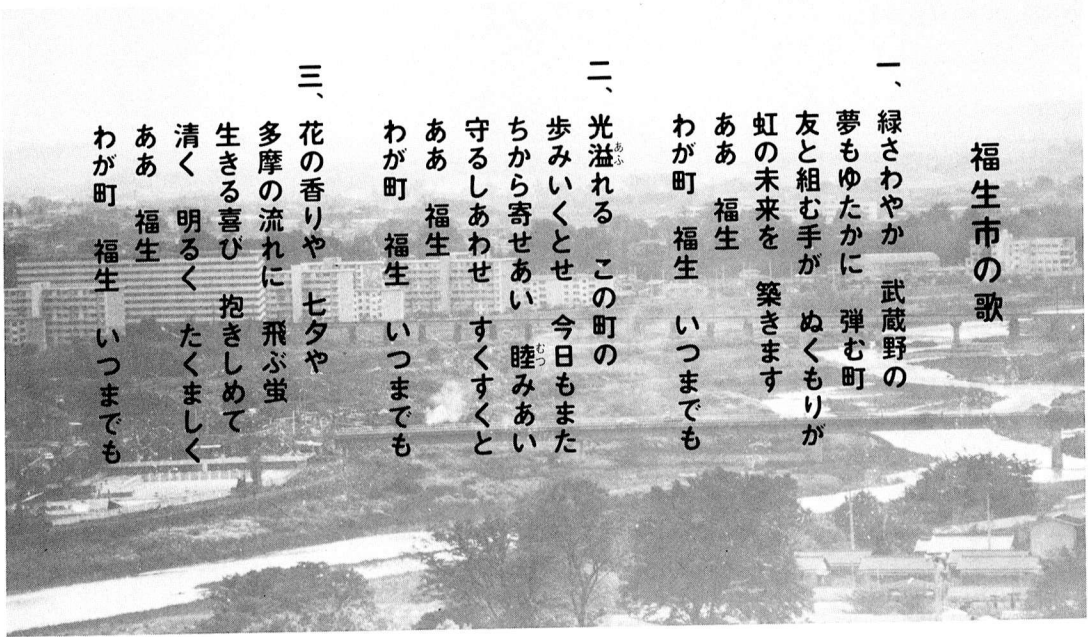 福生市の歌
一、緑さわやか 武蔵野の
夢もゆたかに 弾む町
友と組む手が ぬくもりが
虹の未来を 築きます
ああ 福生
わが町 福生 いつまでも
二、光溢れる この町の
歩みいくとせ 今日もまた
ちから寄せあい 睦みあい
守るしあわせ すくすくと
ああ 福生
わが町 福生 いつまでも
三、花の香りや 七夕や
多摩の流れに 飛ぶ蛍
生きる喜び 抱きしめて
清く 明るく たくましく
ああ 福生
わが町 福生 いつまでも